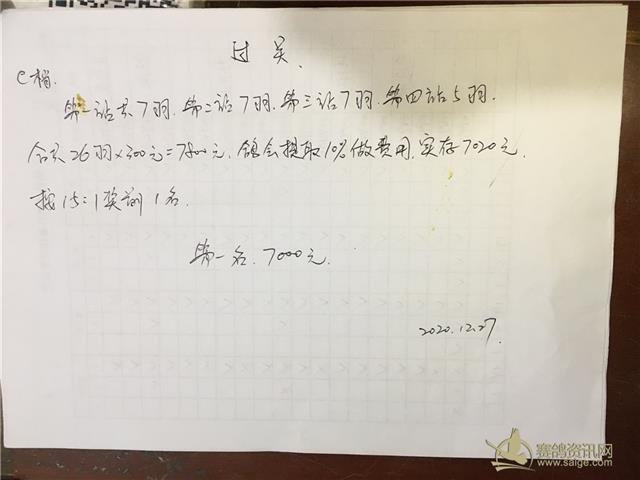 过关.
C档.
第一站共7羽.第二站7羽.第三站7羽.第四站5羽.
合共26羽×300元=7800元.鸽会提取10%做费用.实存7020元.
按15:1奖前1名.
第一名.7000元.
2020.12.27.
赛鸽资讯网
www.saige.com